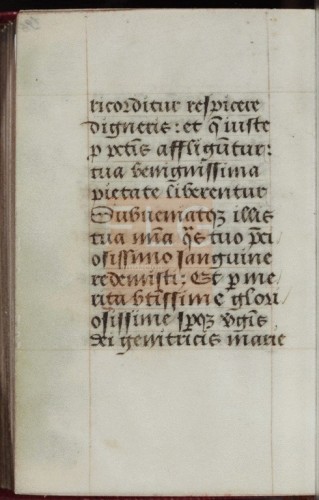 ricorditur respicere
digneris: et q̄ iuste
p̱ pctīs affligūtur:
tua benignissima
pietate liberentur
Subueniatqꝫ illis
tua mīa qs̄ tuo p̄ci
osissimo sanguine
redemisti: Et p̱ me
rita btīssime glori
osissime sp̱qꝫ vgīs
dei genitricis marie